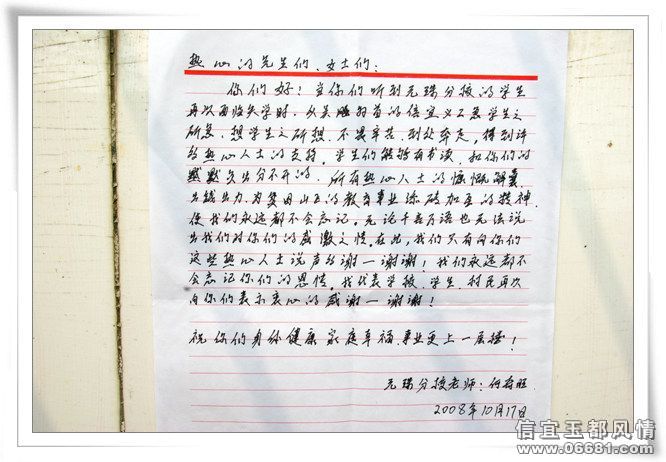 热心的先生们、女士们：
你们好！当你们听到元瑞分校的学生
再以面临失学时，以吴 为首的信宜义工急学生之
所急，想学生之所想，不畏辛苦，到处奔走，得到许
多热心人士的支持，学生们能够有书读，和你们的
默默支出分不开的。所有热心人士的慷慨解囊，
出钱出力，为贫困山区的教育事业添砖加瓦的精神，
使我们永远都不会忘记。无论千言万语也无法说
出我们对你们的感激之情。在此，我们只有向你们
这些热心人士说声谢一谢谢！我们永远都不
会忘记你们的恩情。我代表学校、学生、村民再次
向你们表示衷心的感谢一谢谢！
祝你们身体健康 家庭幸福、事业更上一层楼！
元瑞分校老师：何存旺
2008年10月17日
信宜玉都风情
www.06681.com